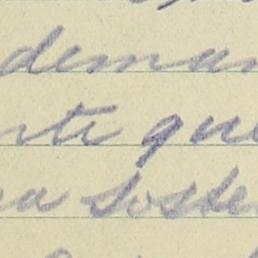 deman
nte que
ra soste